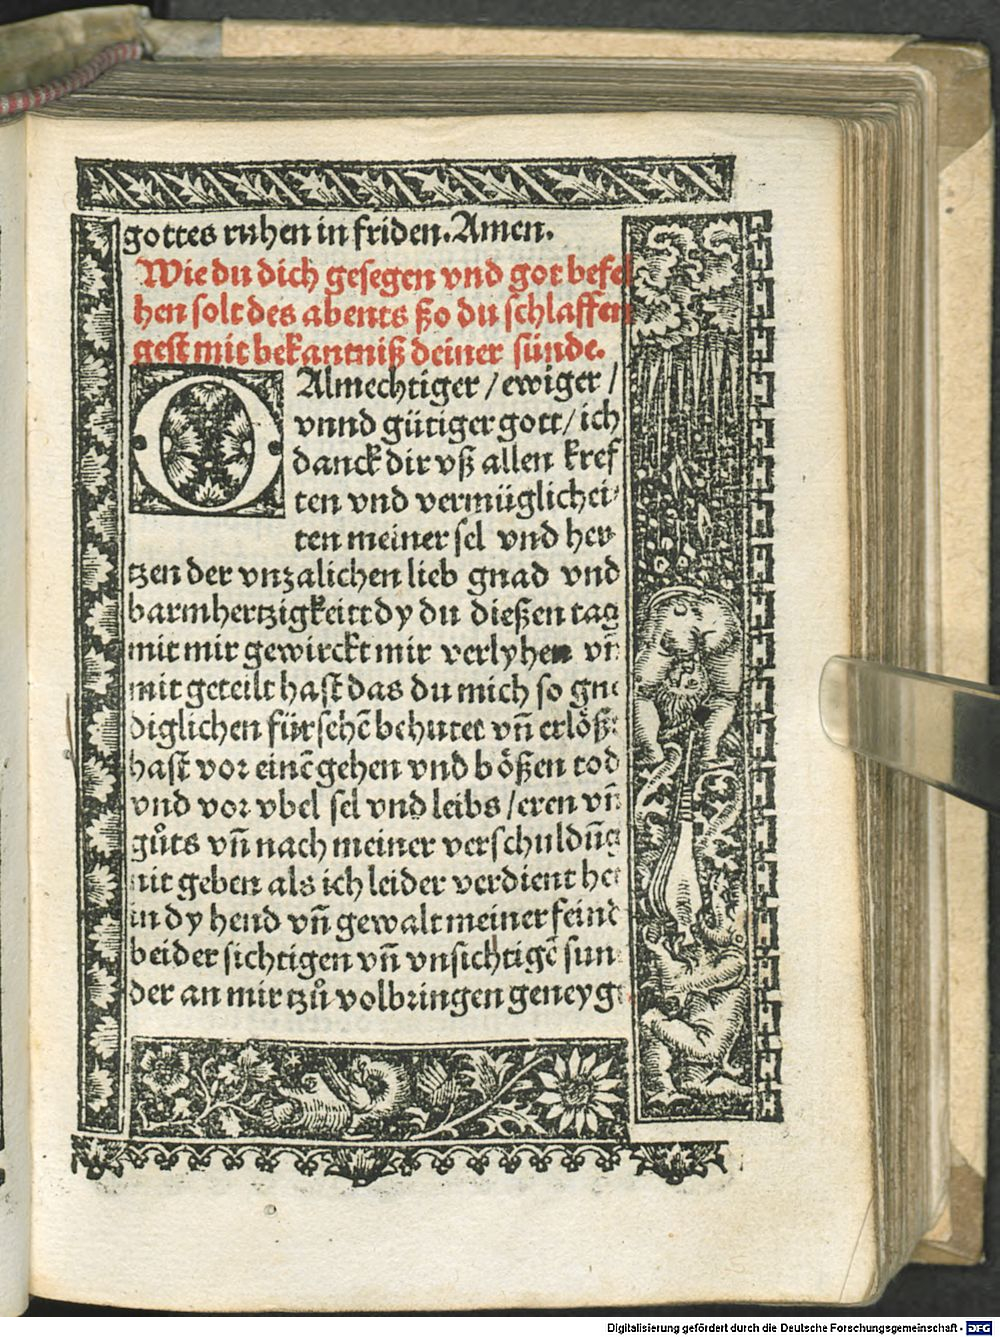 gottes ruhen in friden. Amen.
Wie du dich gesegen vnd got befel
hen solt des abents ßo du schlaffen
gest mit bekantniß deiner sünde.
O Almechtiger / ewiger /
vnnd gütiger gott / ich
danck dir vß allen kref
ten vnd vermüglichei⸗
ten meiner sel vnd her⸗
tzen der vnzalichen lieb gnad vnd
barmhertzigkeitt dy du dießen tag
mit mir gewirckt mir verlyhen vñ
mit geteilt hast das du mich so gne
diglichen fürsehẽ behutet vñ erlößt
hast vor einẽ gehen vnd bößen tod
vnd vor vbel sel vnd leibs / eren vñ
gůts vñ nach meiner verschuldũg
nit geben als ich leider verdient het
in dy hend vñ gewalt meiner feind
beider sichtigen vñ vnsichtigẽ sun
der an mir tzů volbringen geneygt
Digitalisierung gefördert durch die Deutsche Forschungsgemeinschaft - DFG